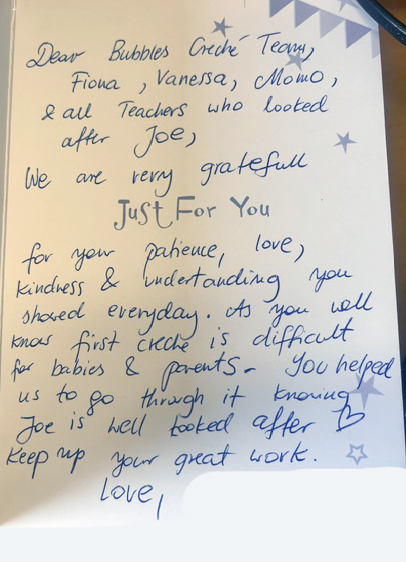 Dear Bubbles Creché Team,
Fiona , Vanessa, Momo,
& all Teachers who looked
after Joe,
We are very gratefull
Just For You
for your patience, love,
kindness & understanding you
showed everyday. As you well
know first creché is difficult
for babies & parents - You helped
us to go through it knowing
Joe is well looked after
Keep up your great work.
Love,